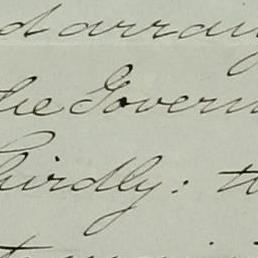 d arrang
he Govern
hirdly: th